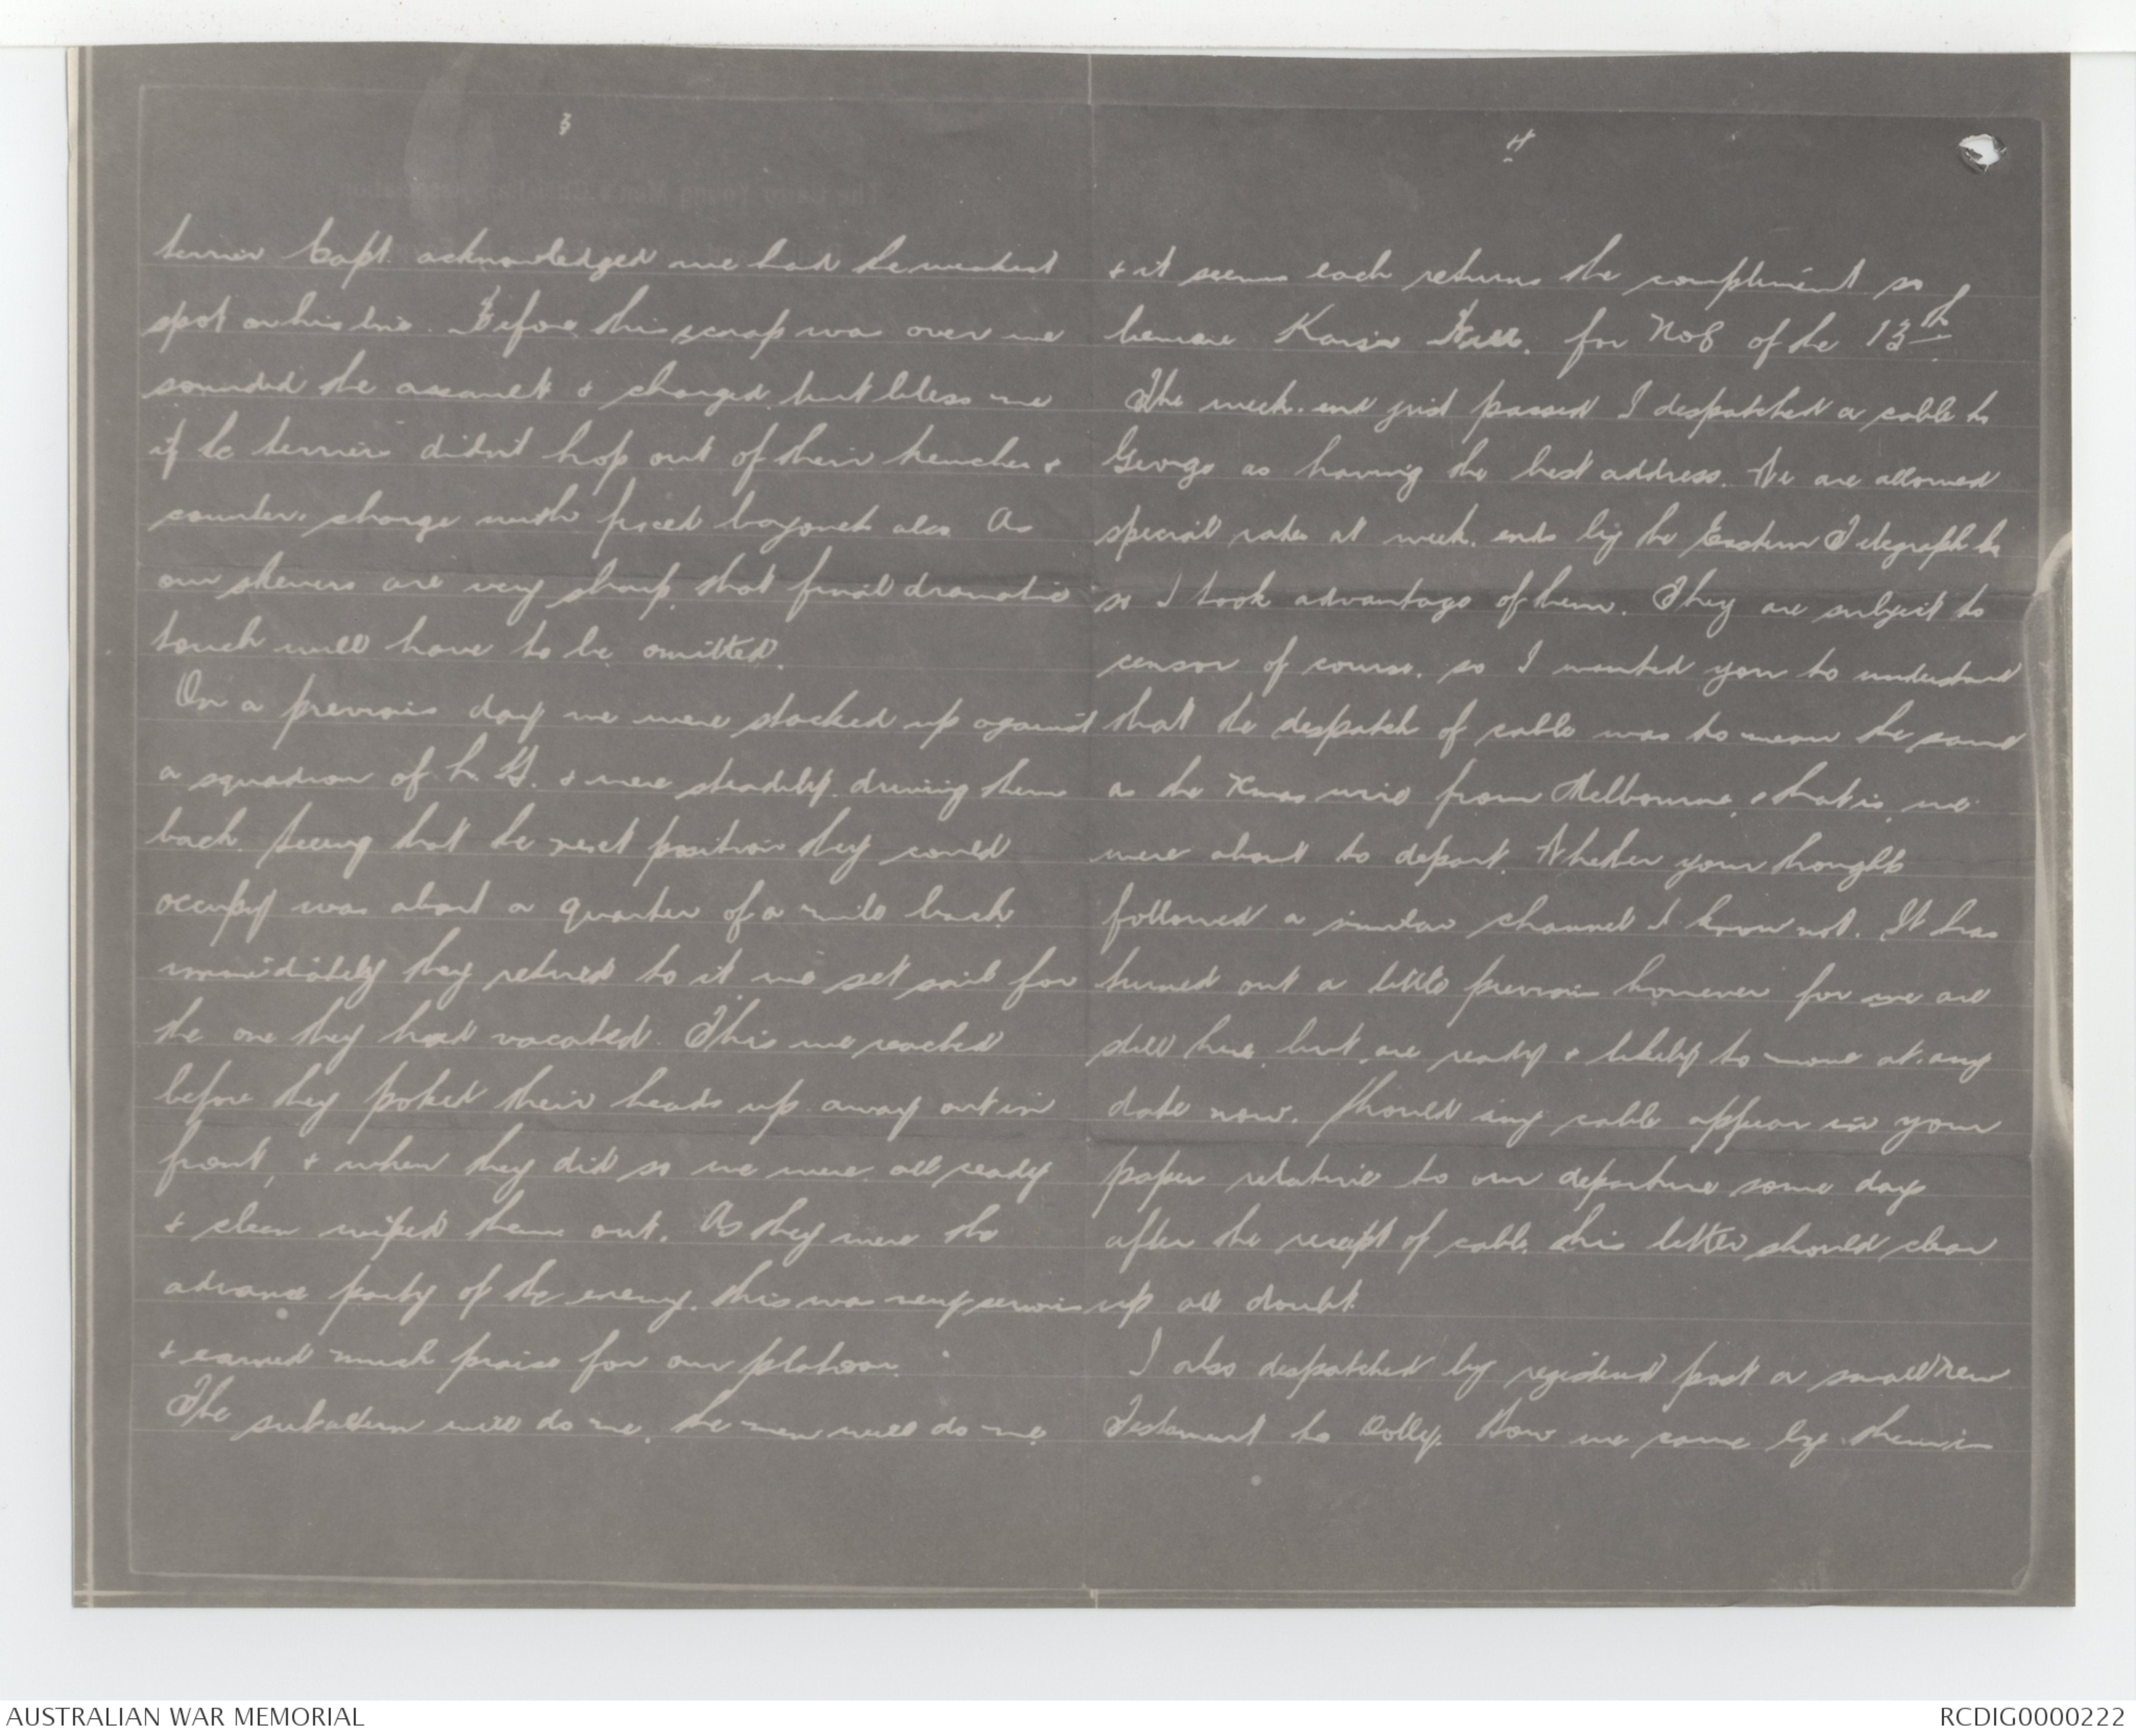 3
terrier Capt. acknowledged we had the weakest
spot on his line. Before this scrap was over we
sounded the assault & charged but bless me
if the terriers didn't hop out of their trenches &
counter-charge with fixed bayonets also. As
our skewers are very sharp, that final dramatic
touch will have to be omitted.
On a previous day we were stacked up against
a squadron of L. H. & were steadily driving them
back. Seeing that the next position they could
occupy was about a quarter of a mile back
immediately they retired to it we set sail for
the one they had vacated. This we reached
before they poked their heads up away out in
front, & when they did so we were all ready
& clean wiped them out. As they were the
advance party of the enemy, this was very serious
& earned much praise for our platoon.
The subaltern will do me, the men will do me
4
& it seems each returns the compliment so
beware Kaiser Bill. for No 8 of the 13th.
The week-end just passed I despatched a cable to
George as having the best address. We are allowed
special rates at week-ends by the Eastern Telegraph Co
so I took advantage of them. They are subject to
censor of course, so I wanted you to understand
that the despatch of cable was to mean the same
as the Xmas wire from Melbourne, that is, we
were about to depart. Whether your thoughts
followed a similar channel I know not. It has
turned out a little previous however for we are
still here, but are ready & likely to move at any
date now. Should any cable appear in your
paper relative to our departure some days
after the receipt of cable this letter should clear
up all doubt.
I also despatched by registered post a small New
Testament to Dolly. How we came by them is
AUSTRALIAN WAR MEMORIAL
RCDIG0000222